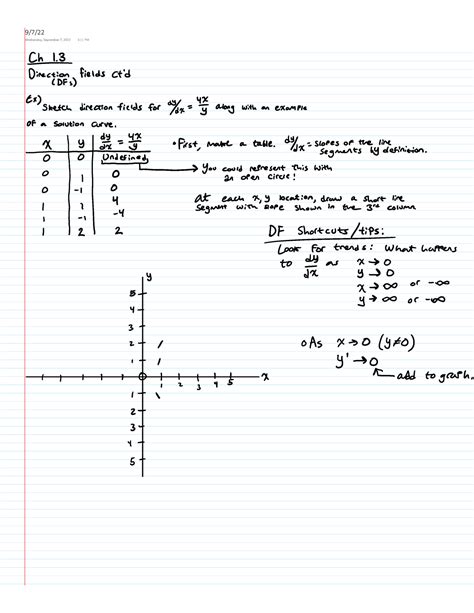 9/7/22
Wednesday, September 7, 2022 3:21 PM
Ch 1.3
Direction fields ct'd
(DFs)
Ex) Sketch direction fields for dy/dx = 4x/y along with an example
of a solution curve.
x y dy/dx = 4x/y
• First, make a table. dy/dx = slopes of the line
segments by definition.
0 0 Undefined
→ You could represent this with
an open circle!
0 1 0
0 -1 0
1 1 4
1 -1 -4
1 2 2
At each x, y location, draw a short line
segment with slope shown in the 3rd column
DF Shortcuts/tips:
Look for trends: What happens
to dy/dx as x→0
y→0
x→∞ or -∞
y→∞ or -∞
y
5
4
3
2
1
1 2 3 4 5 x
1
2
3
4
5
o As x→0 (y≠0)
y'→0
add to graph.